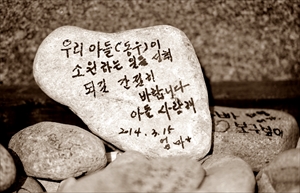 우리 아들(동우)이
소원하는 일을 전혀
되길 간절히
바랍니다
아들 사랑해
2014. 3. 15
엄마